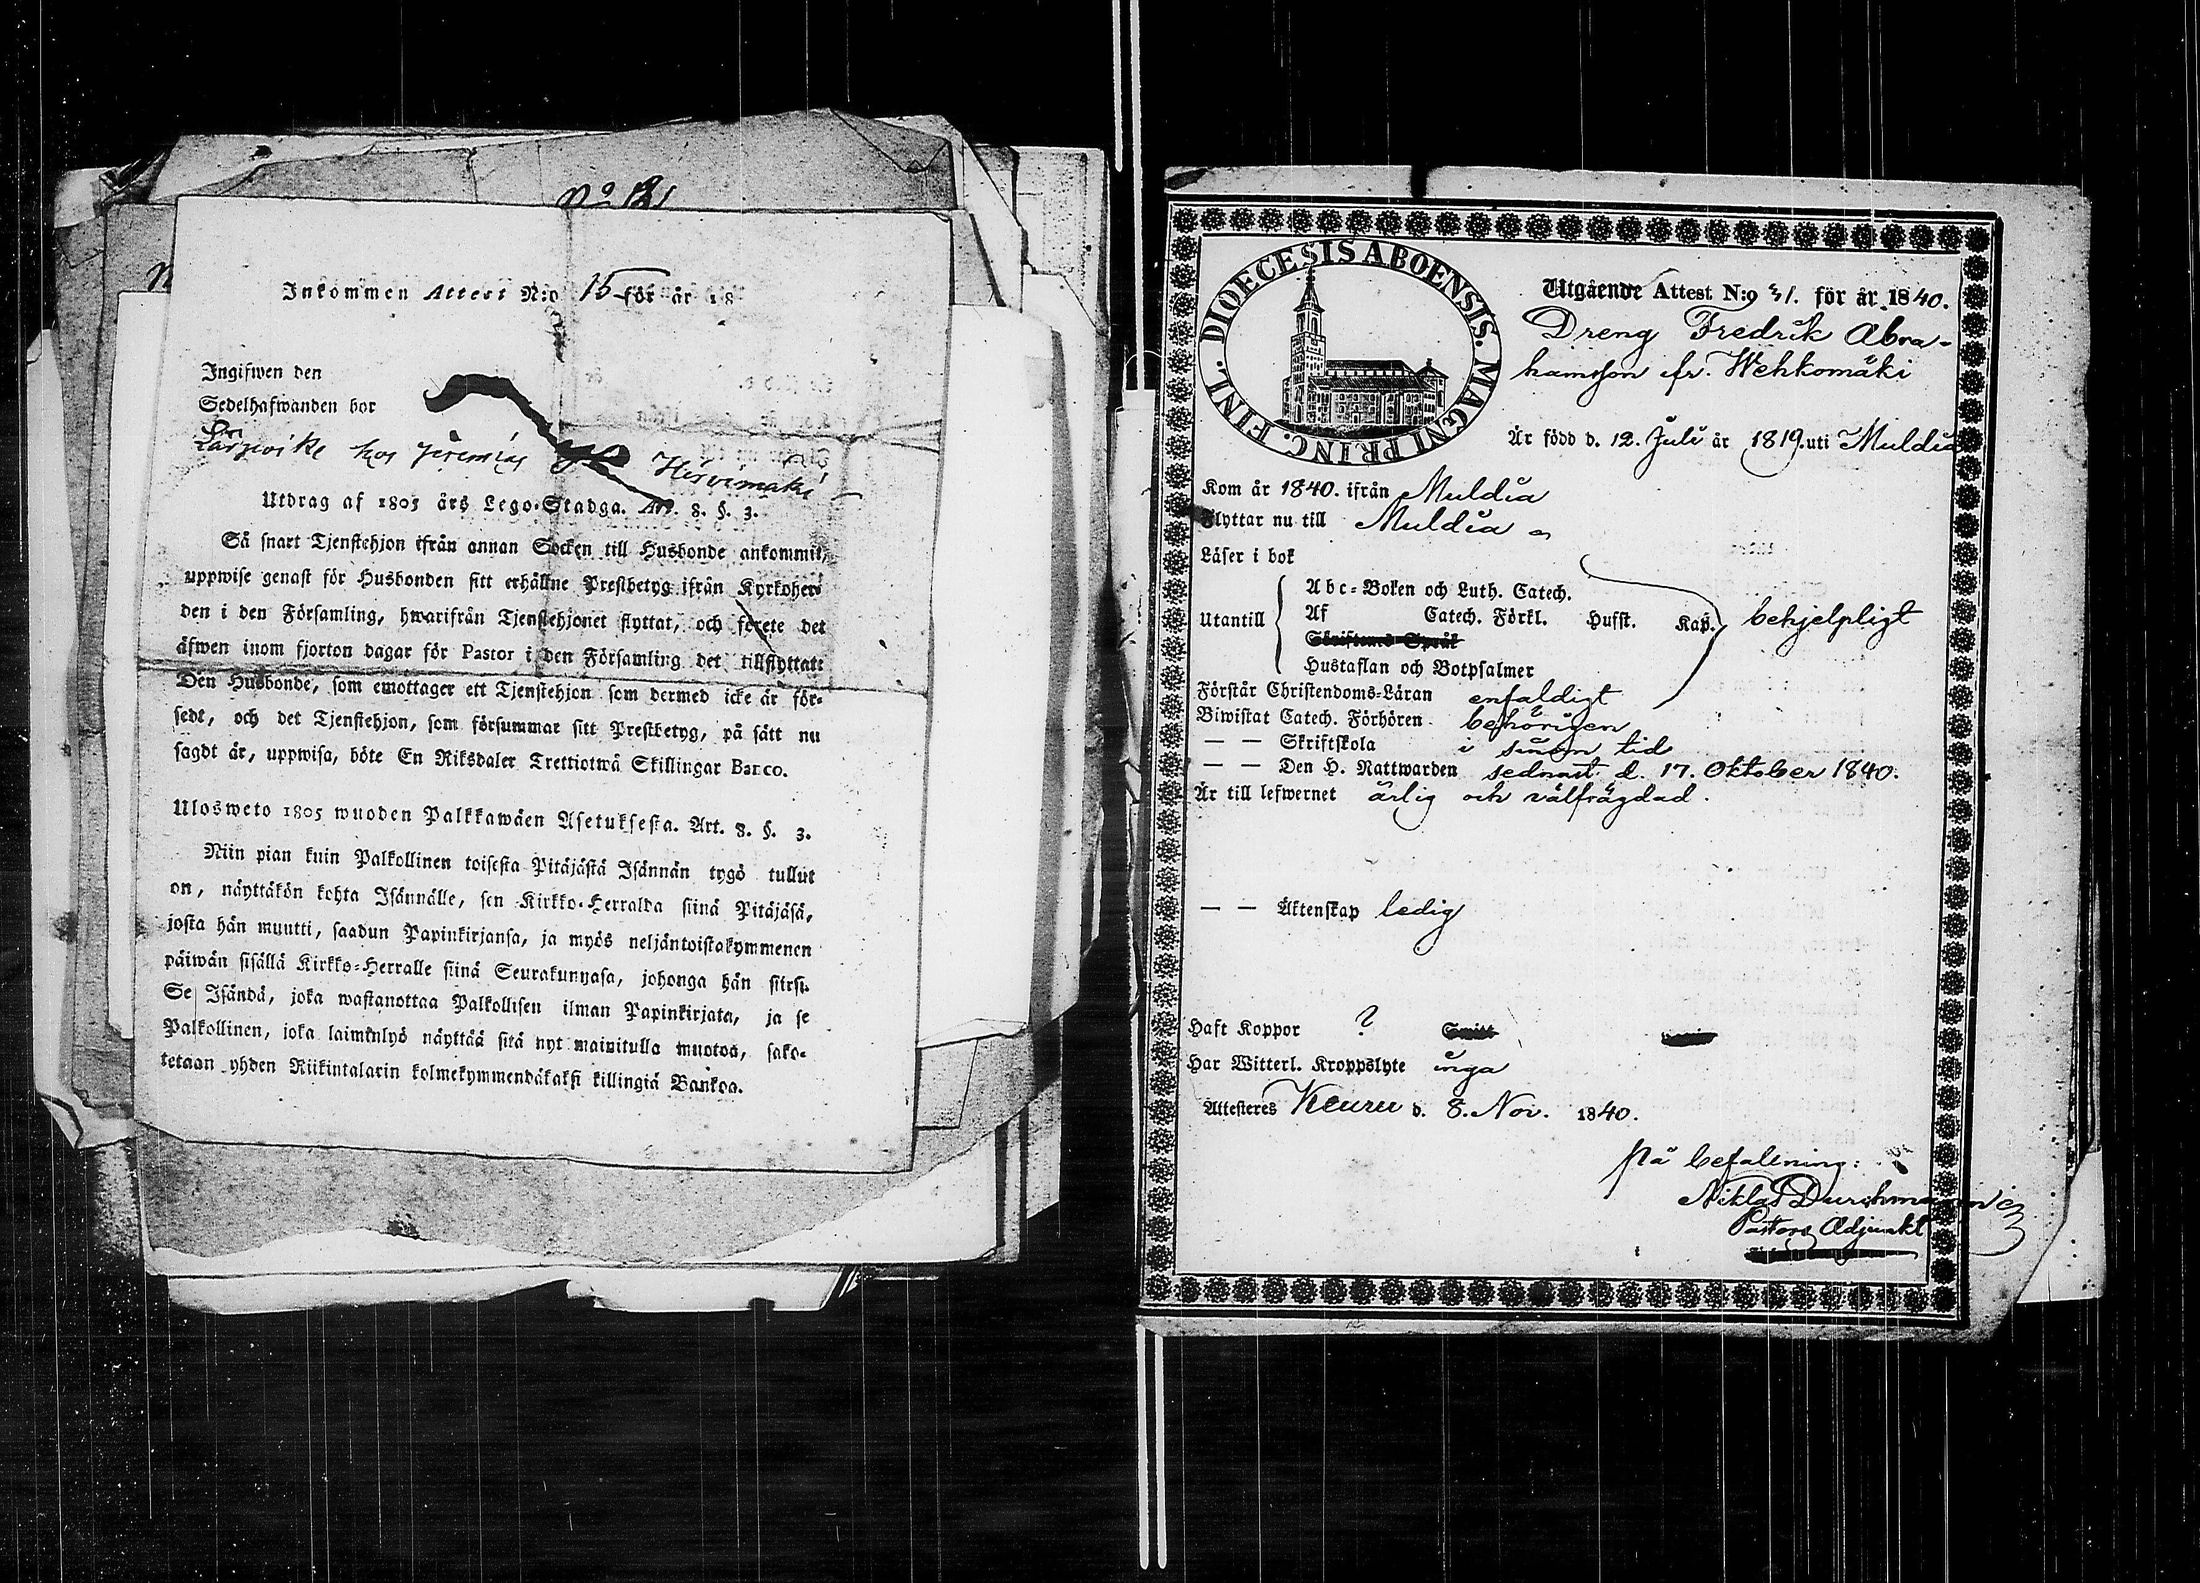 Nº 131
Inkommen Attest N:o 15 för år 18
Ingifwen den
Sedelhafwanden bor
hos Jeremias Hirvimäki
Utdrag af 1805 års Lego-Stadga. Art. 8. §. 3.
Så snart Tjenstehjon ifrån annan Socken till Husbonde ankommit,
uppwise genast för Husbonden sitt erhållne Prestbetyg ifrån Kyrkoher-
den i den Församling, hwarifrån Tjenstehjonet flyttat, och förete det
äfwen inom fjorton dagar för Pastor i den Församling det tillflyttat:
Den Husbonde, som emottager ett Tjenstehjon som dermed icke är för-
sedt, och det Tjenstehjon, som försummar sitt Prestbetyg, på sätt nu
sagdt är, uppwisa, böte En Riksdaler Trettiotwå Skillingar Banco.
Ulosweto 1805 wuoden Palkkawäen Asetuksesta. Art. 8. §. 3.
Niin pian kuin Palkollinen toisesta Pitäjästä Isännän tygö tullut
on, näyttäkön kohta Isännälle, sen Kirkko-Herralda siinä Pitäjäsä,
josta hän muutti, saadun Papinkirjansa, ja myös neljäntoistakymmenen
päiwän sisällä Kirkko-Herralle siinä Seurakunnasa, johonga hän siirsi.
Se Isändä, joka wastanottaa Palkollisen ilman Papinkirjata, ja se
Palkollinen, joka laiminlyö näyttää sitä nyt mainitulla muotoa, sako-
tetaan yhden Riikintalarin kolmekymmendäkaksi killingiä Bankoa.
DIOECESIS ABOENSIS. MAGNI PRINC. FINL.
Utgående Attest N:o 31. för år 1840.
Dreng Fredrik Abra-
hamsson fr. Wehkomäki
Är född d. 12. Juli år 1819. uti Muldia
Kom år 1840. ifrån Muldia
Flyttar nu till Muldia
Läser i bok
Abc-Boken och Luth. Catech.
Utantill Af Catech. Förkl. Husst. Kap. behjelpligt
Skriftenes Språk
Hustaflan och Botpsalmer
Förstår Christendoms-Läran enfaldigt
Biwistat Catech. Förhören behörigen
— — Skriftskola i sinom tid
— — Den H. Nattwarden sednast d. 17. Oktober 1840.
Är till lefwernet ärlig och välfrägdad.
— — Äktenskap ledig
Haft Koppor ? Smitt
Har Witterl. Kroppslyte inga
Attesteres Keuru d. 8. Nov. 1840.
På befallning:
Niklas Durchman
Pastors Adjunkt